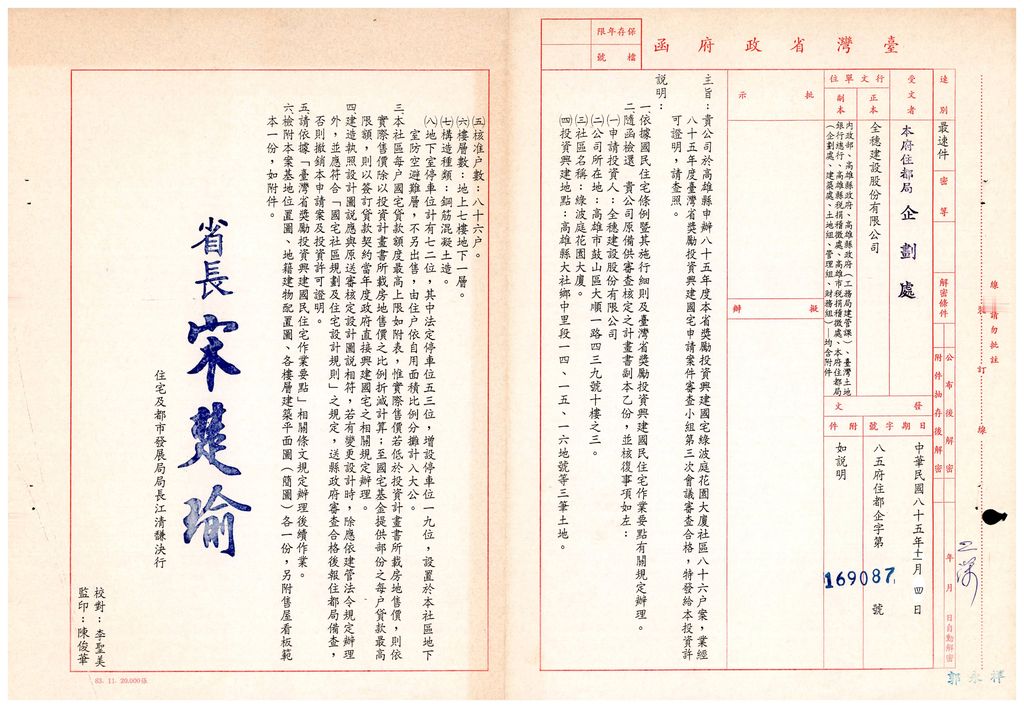 臺灣省政府函
保存年限
檔號
速別
最速件
密等
解密條件
公布後解密
附件抽存後解密
年月日自動解密
受文者
本府住都局企劃處
行文單位
正本
全穗建設股份有限公司
副本
內政部、高雄縣政府、高雄縣政府（工務局建管課）、臺灣土地
銀行總行、高雄縣稅捐稽徵處、高雄市稅捐稽徵處、本府住都局
（企劃處、建築處、土地組、管理組、財務組）—均含附件
發文
日期
中華民國八十五年十二月四日
字號
八五府住都企字第169087號
附件
如說明
批示
擬辦
主旨：貴公司於高雄縣申辦八十五年度本省獎勵投資興建國宅綠波庭花園大廈社區八十六户案，業經
八十五年度臺灣省獎勵投資興建國宅申請案件審查小組第三次會議審查合格，特發給本投資許
可證明，請查照。
說明：
一、依據國民住宅條例暨其施行細則及臺灣省獎勵投資興建國民住宅作業要點有關規定辦理。
二、隨函檢還　貴公司原備供審查核定之計畫書副本乙份，並核復事項如左：
㈠申請投資人：全穗建設股份有限公司
㈡公司所在地：高雄市鼓山區大順一路四三九號十樓之三。
㈢社區名稱：綠波庭花園大廈。
㈣投資興建地點：高雄縣大社鄉中里段一四、一五、一六地號等三筆土地。
㈤核准户數：八十六户。
㈥樓層數：地上七樓地下一層。
㈦構造種類：鋼筋混凝土造。
㈧地下室停車位計有七二位，其中法定停車位五三位，增設停車位一九位，設置於本社區地下
室防空避難層，不另出售，由住户依自用面積比例分攤計入大公。
三、本社區每户國宅貸款額度最高上限如附表，惟實際售價若低於投資計畫書所載房地售價，則依
實際售價除以投資計畫書所載房地售價之比例折減計算；至國宅基金提供部份之每户貸款最高
限額，則以簽訂貸款契約當年度政府直接興建國宅之相關規定辦理。
四、建造執照設計圖說應與原送審核定設計圖說相符，若有變更設計時，除應依建管法令規定辦理
外，並應符合「國宅社區規劃及住宅設計規則」之規定，送縣政府審查合格後報住都局備查，
否則撤銷本申請案及投資許可證明。
五、請依據「臺灣省獎勵投資興建國民住宅作業要點」相關條文規定辦理後續作業。
六、檢附本案基地位置圖、地籍建物配置圖、各樓層建築平面圖（簡圖）各一份，另附售屋看板範
本一份，如附件。
省長宋楚瑜
住宅及都市發展局局長江清馦決行
校對：李聖美
監印：陳俊華
裝訂線
請勿批註
83. 11. 20.000張